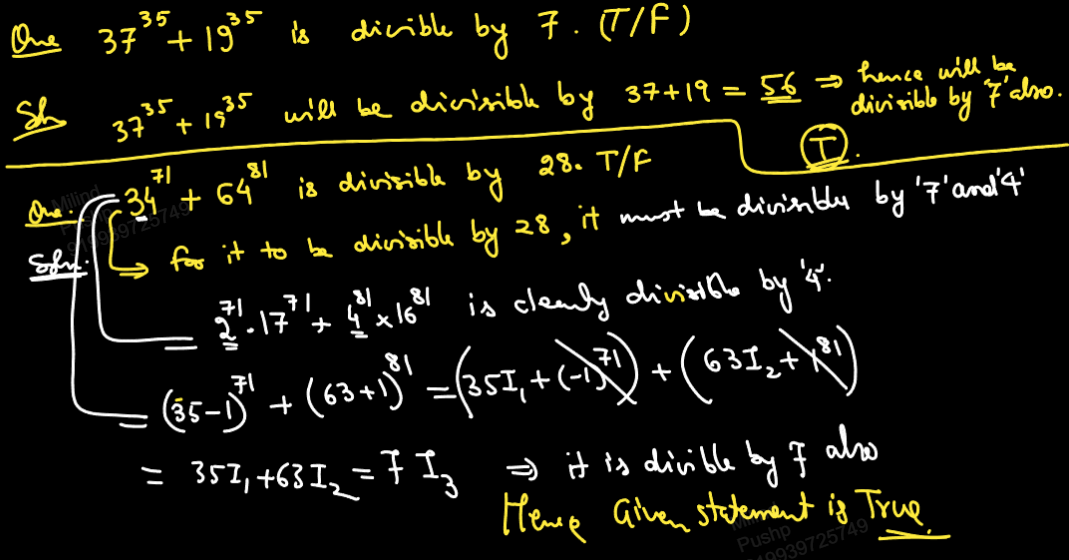 Que 37^35 + 19^35 is divisible by 7. (T/F)
Sol 37^35 + 19^35 will be divisible by 37+19 = 56 ⇒ hence will be divisible by '7' also.
(T).
Que. 34^71 + 64^81 is divisible by 28. T/F
Soln. → for it to be divisible by 28, it must be divisible by '7' and '4'
= 2^71 . 17^71 + 4^81 × 16^81 is clearly divisible by '4'.
= (35-1)^71 + (63+1)^81 = (35I₁ + (-1)^71) + (63I₂ + 1^81)
= 35I₁ + 63I₂ = 7 I₃ ⇒ it is divible by 7 also
Hence Given statement is True.
Milind
Pushp
+919939725749
Pushp
+919939725749